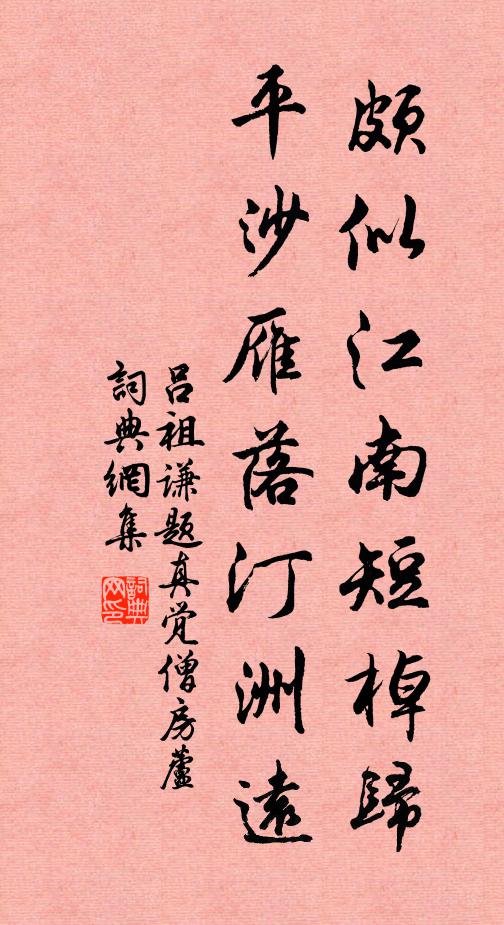 頗似江南短棹歸
平沙雁落汀洲遠
吕祖谦题真觉僧房蘆
詞典網集
詞典
网印